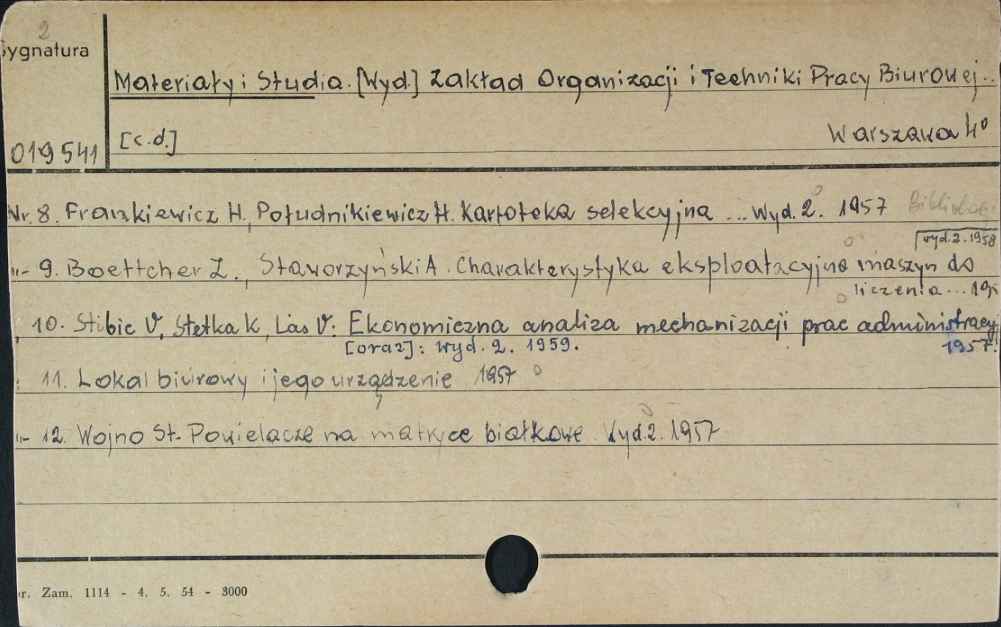 2
Sygnatura
Materiały i Studia. [Wyd.] Zakład Organizacji i Techniki Pracy Biurowej..
019541 [c.d.] Warszawa 4°
Nr. 8. Frankiewicz H., Południkiewicz H. Kartoteka selekcyjna ... Wyd. 2. 1957
wyd. 2. 1958
"- 9. Boettcher Z., Staworzyński A. Charakterystyka eksploatacyjna maszyn do
liczenia ... 195
10. Stibic V., Stetka K, Las V. Ekonomiczna analiza mechanizacji prac administracyj
[oraz]: wyd. 2. 1959. 1957.
11. Lokal biurowy i jego urządzenie 1957
"- 12. Wojno St. Powielacze na matryce białkowe. Wyd. 2. 1957
r. Zam. 1114 - 4. 5. 54 - 3000